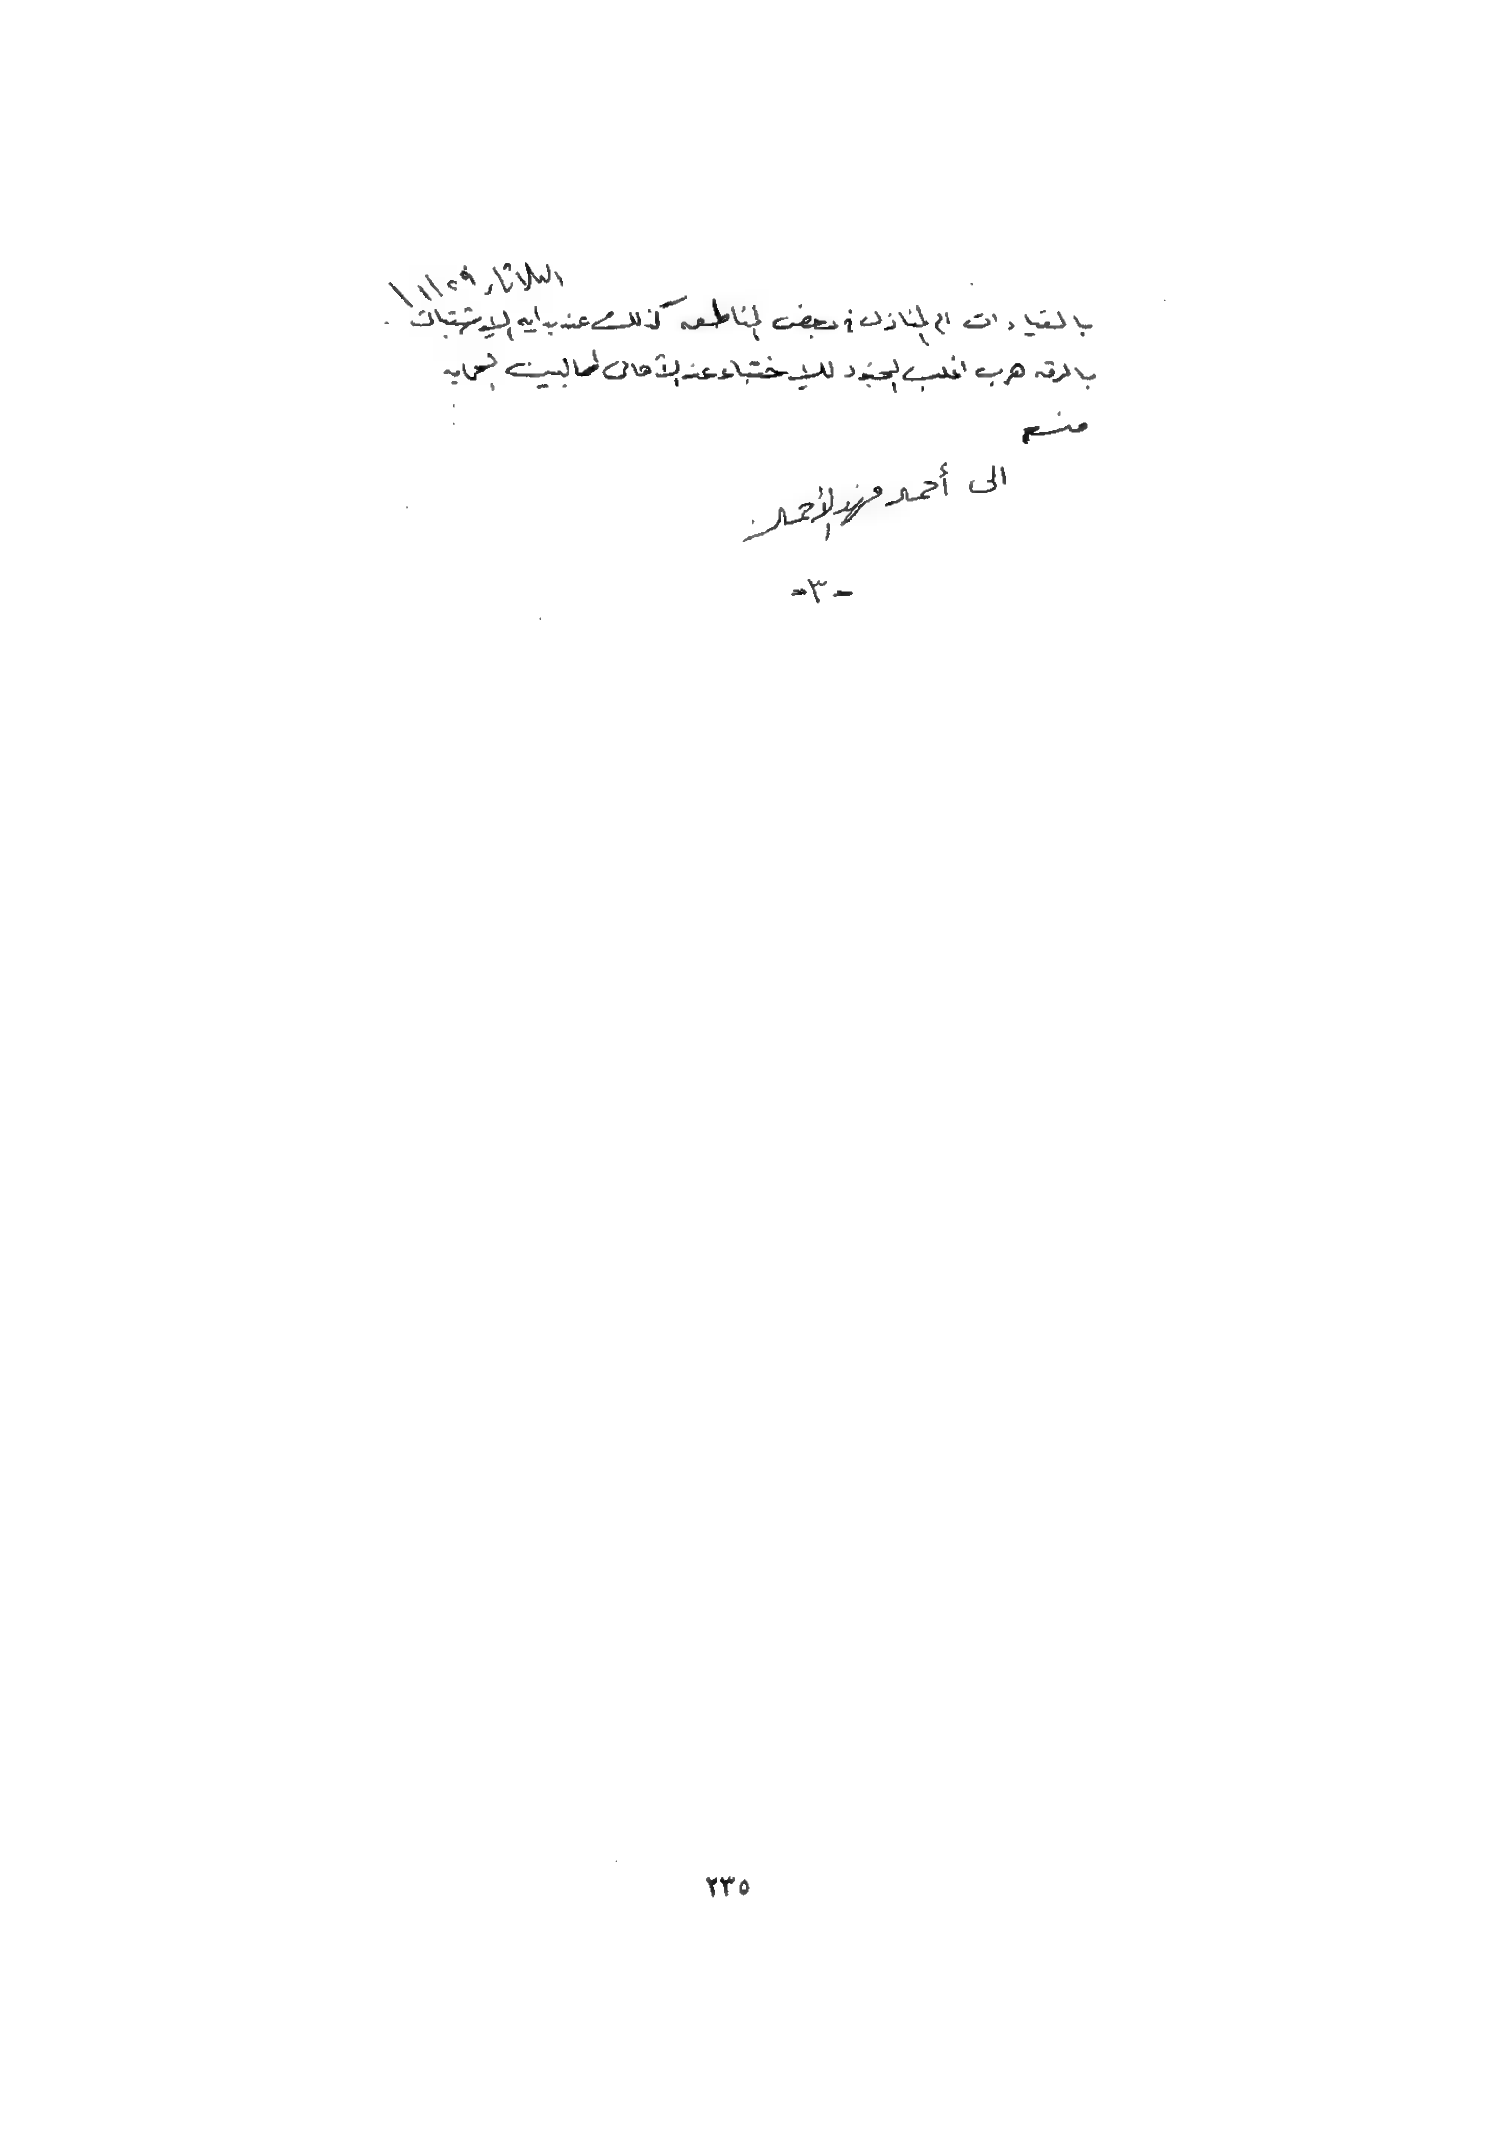 الثلاثاء ٢٩/١/١
بالقيادات ام المنازل في بعض المناطعه كذلك عند بدايه الاشتباك
بالرقه هرب اغلب الجنود للاختباء عند الأهالى طالبين الحمايه
منهم
الى أحمد فهد الأحمد
-٣-
٢٣٥